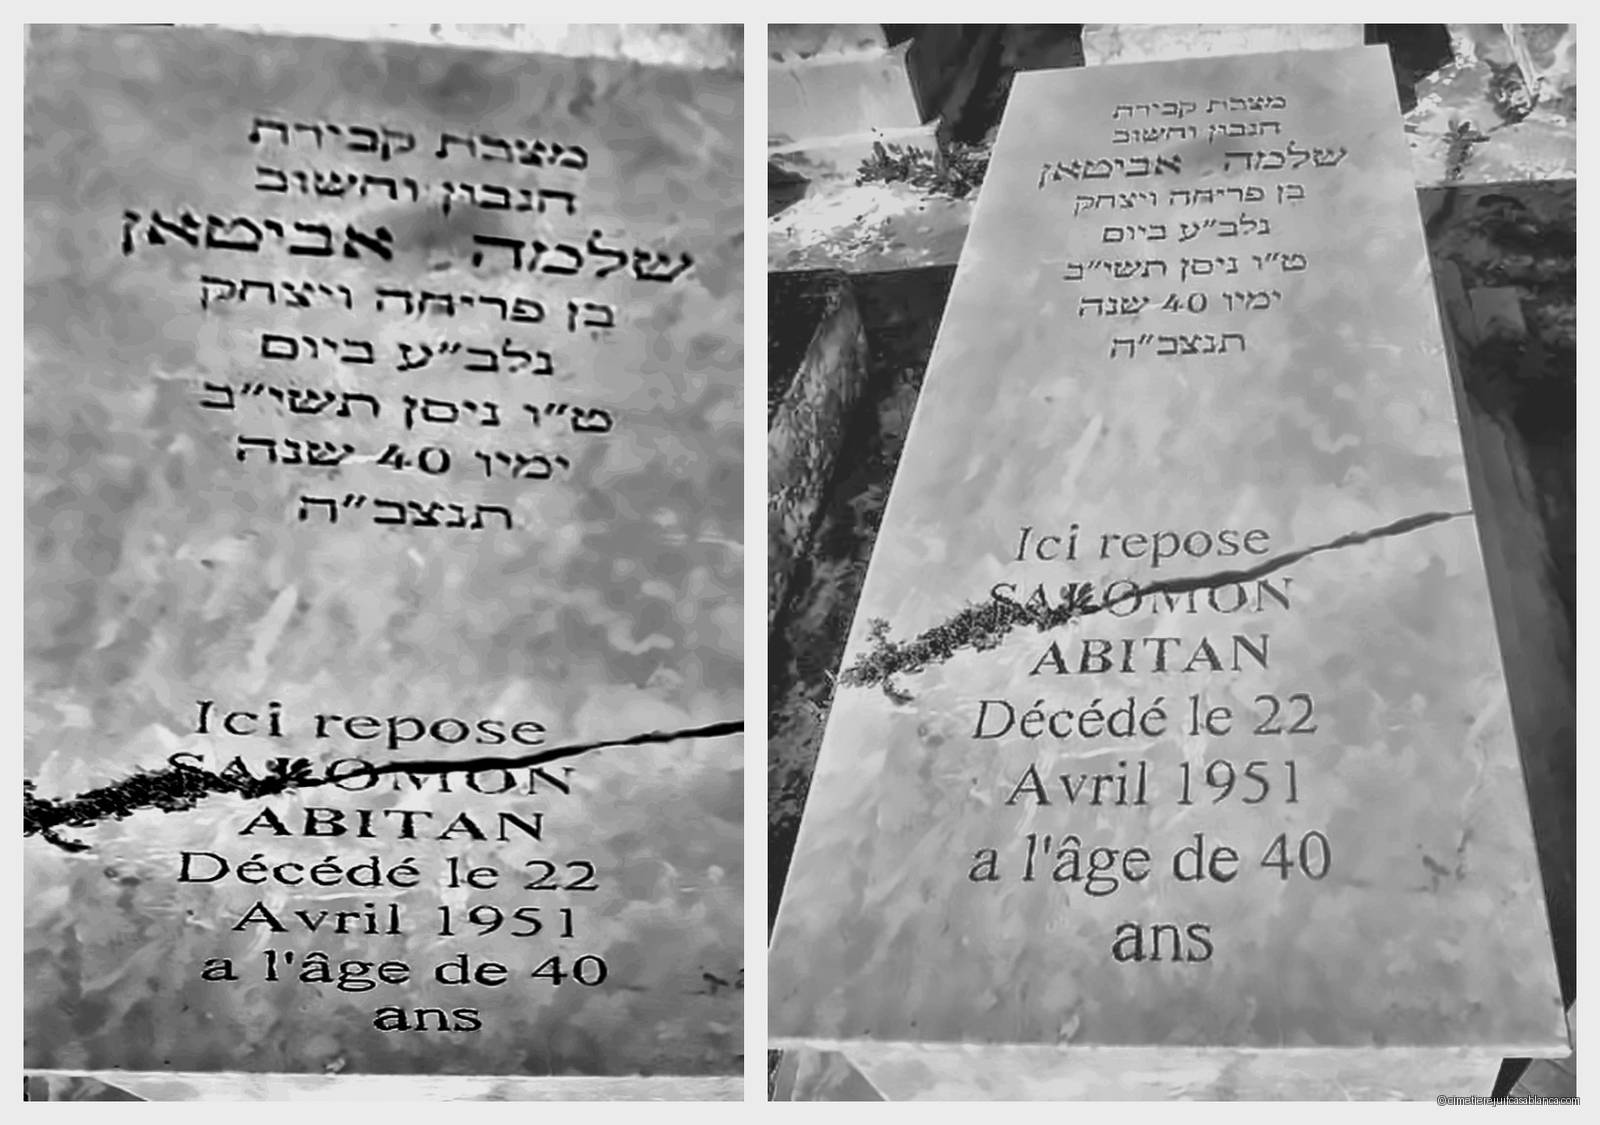 מצבת קבורת
הנבון וחשוב
שלמה אביטאן
בן פריחה ויצחק
נלב״ע ביום
ט״ו ניסן תשי״ב
ימיו 40 שנה
תנצב״ה
Ici repose
SALOMON
ABITAN
Décédé le 22
Avril 1951
a l'âge de 40
ans
מצבת קבורת
הנבון וחשוב
שלמה אביטאן
בן פריחה ויצחק
נלב״ע ביום
ט״ו ניסן תשי״ב
ימיו 40 שנה
תנצב״ה
Ici repose
SALOMON
ABITAN
Décédé le 22
Avril 1951
a l'âge de 40
ans
©cimetierejuifcasablanca.com